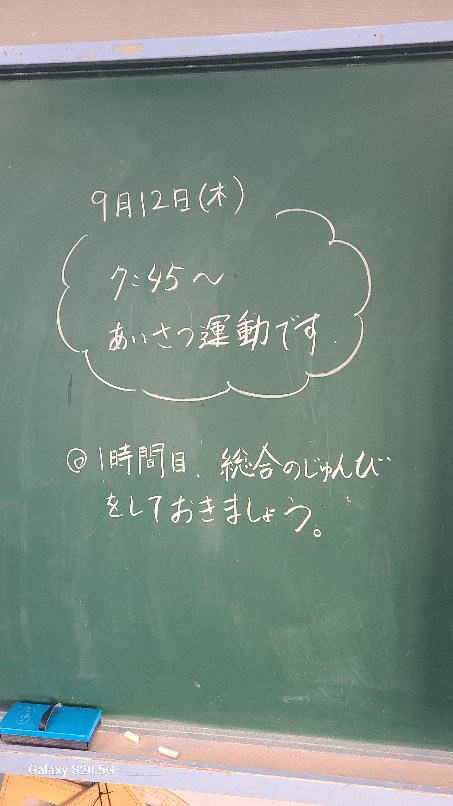 9月12日(木)
7:45～
あいさつ運動です.
◎1時間目、総合のじゅんび
をしておきましょう。
Galaxy S20 5G